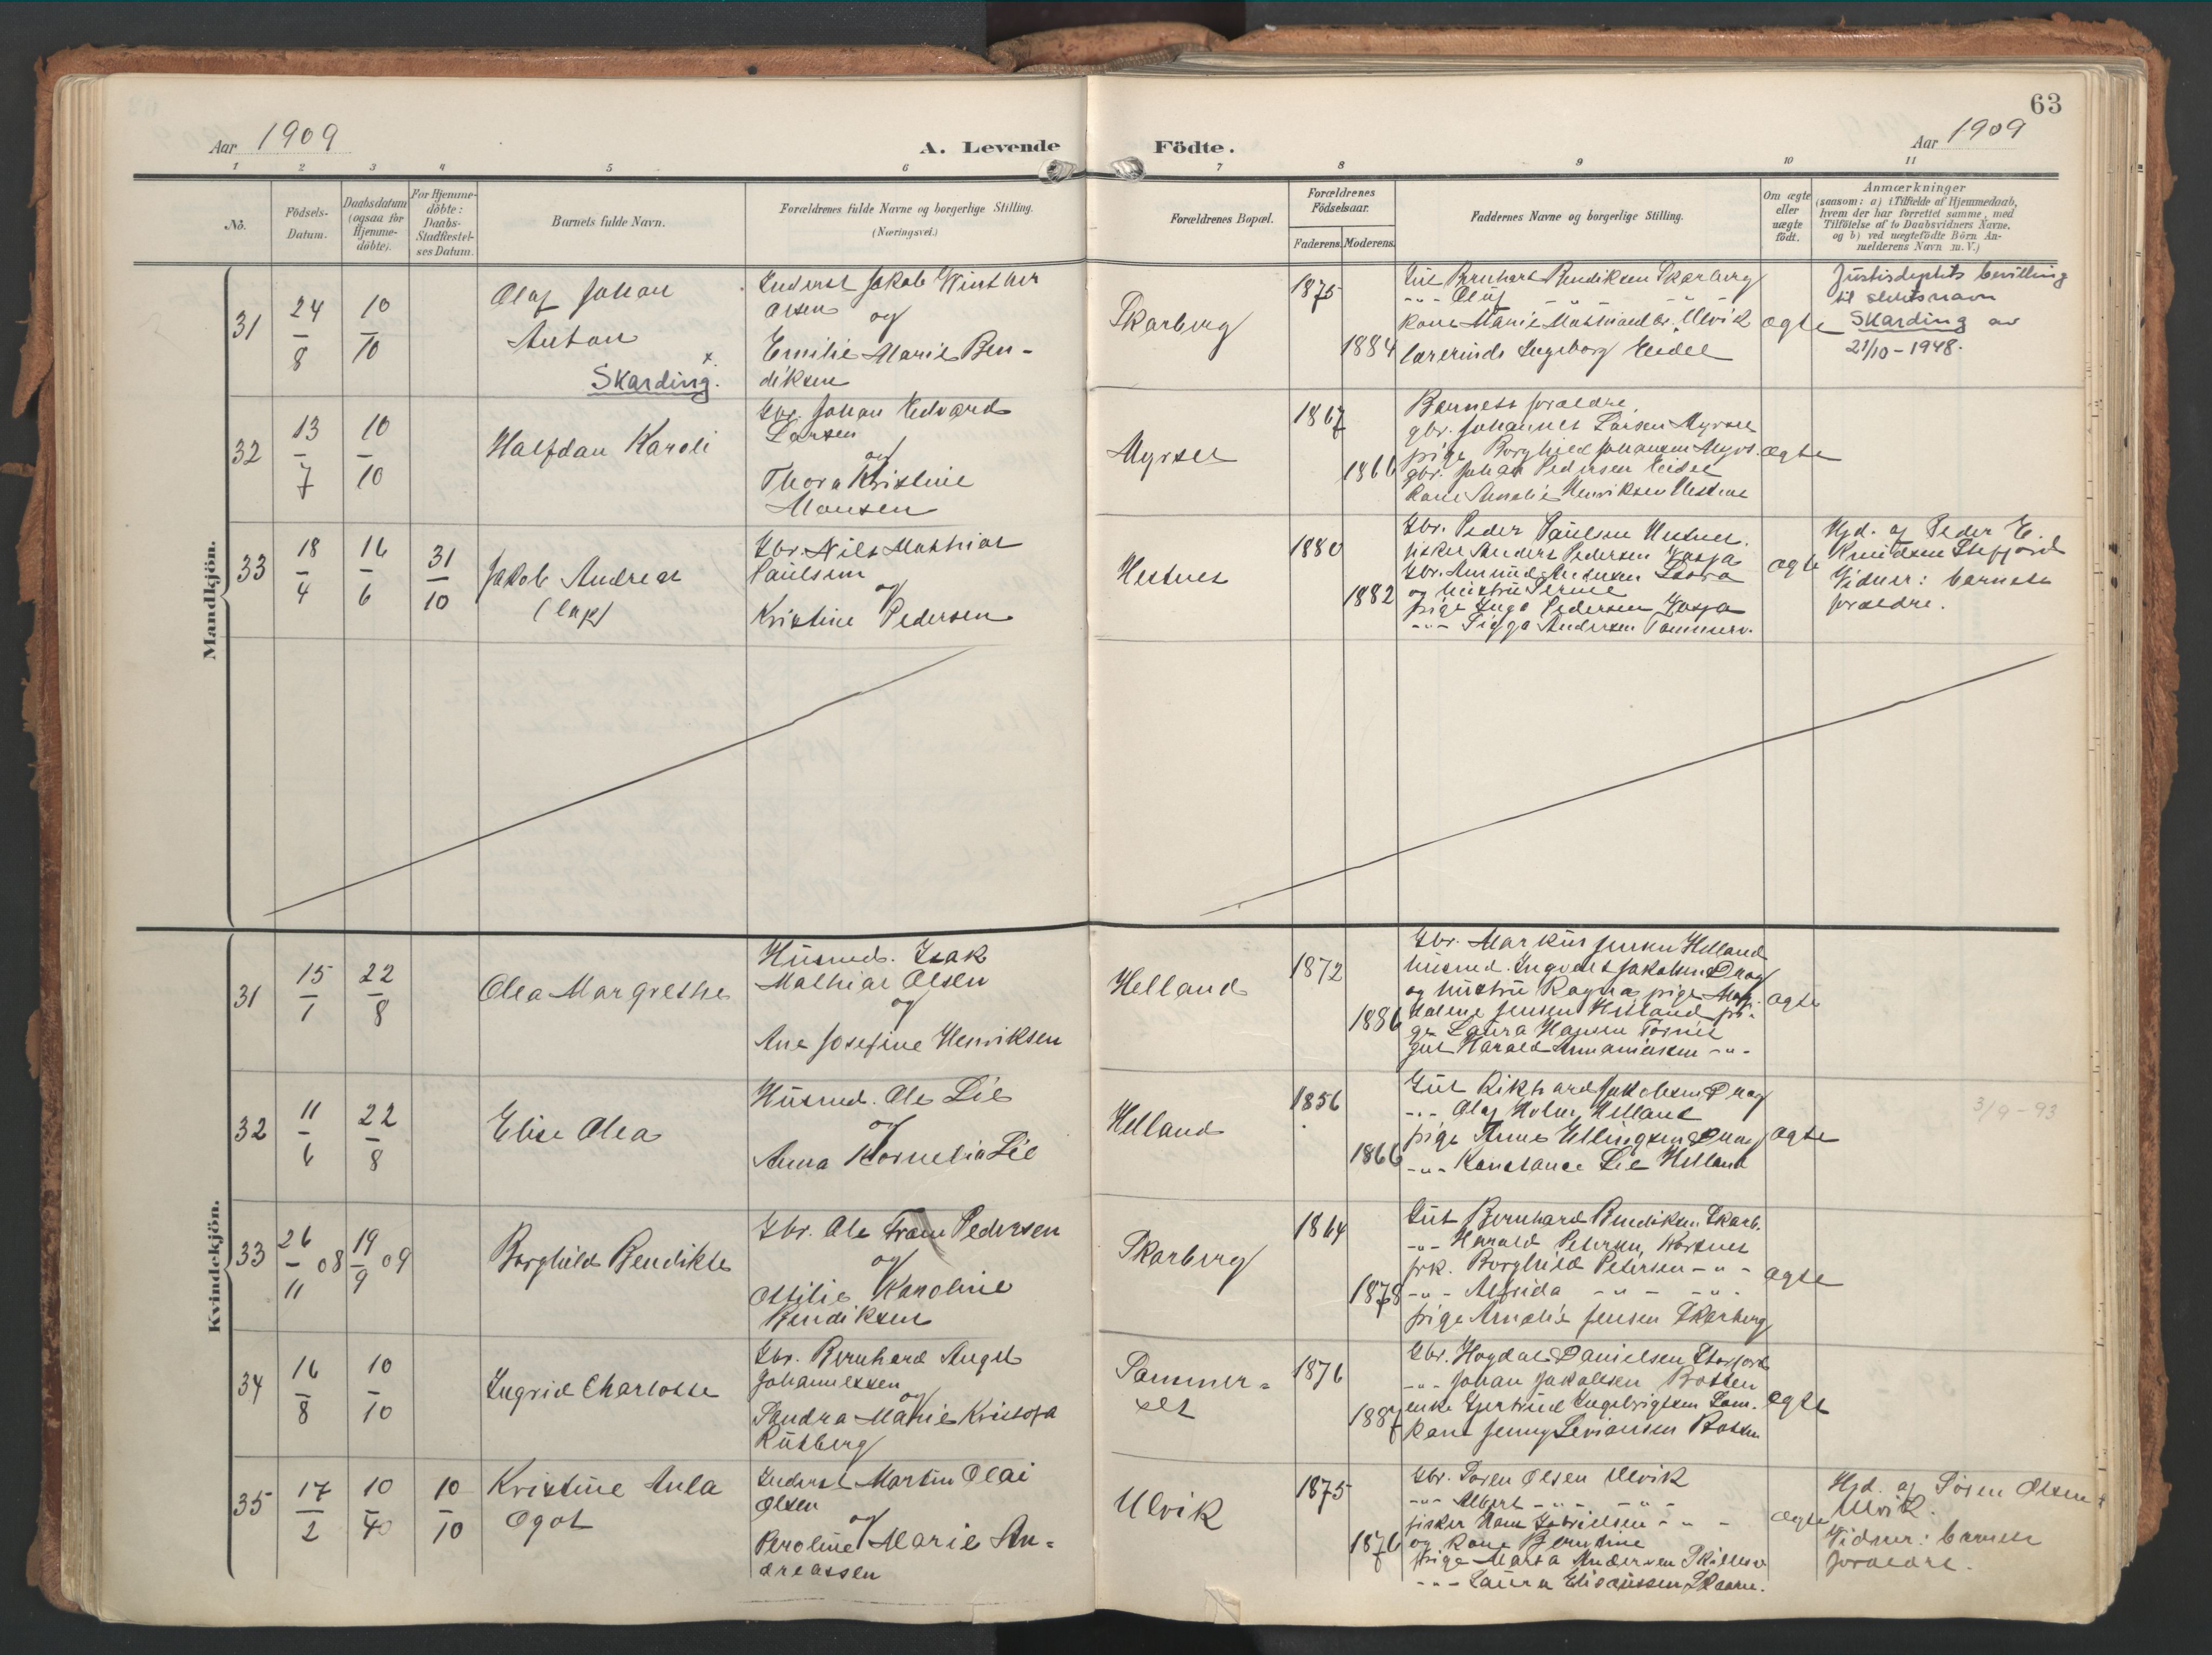 63
Aar 1909
A. Levende
Födte.
Aar 1909
1 2 3 4 5 6 7 8 9 10 11
No.
Födsels-
Datum.
Daabsdatum
(ogsaa for
Hjemme-
döbte).
For Hjemme-
döbte:
Daabs-
Stadfæstel-
ses Datum.
Barnets fulde Navn.
Forældrenes fulde Navne og borgerlige Stilling.
(Næringsvei.)
Forældrenes Bopæl.
Forældrenes
Födselsaar.
Faderens. Moderens.
Faddernes Navne og borgerlige Stilling.
Om ægte
eller
uægte
födt.
Anmærkninger
(saasom: a) i Tilfælde af Hjemmedaab,
hvem der har forrettet samme, med
Tilföielse af to Daabsvidners Navne,
og b) ved uægtefödte Börn An-
melderens Navn m. V.)
Mandkjön.
31
24
8
10
10
Olaf Johan
Anton
x
Skarding.
Inderst Jakob Winther
Olsen og
Emilie Marie Ben-
diksen
Skarberg
1875
1884
Gut Bernhart Bendiksen Skarberg
-"- Oluf -"- -"-
Kone Marie Ulvik
lærerinde Ingeborg
ægte
Justisdeptets bevilling
til slektsnavn
Skarding av
21/10-1948.
32
13
7
10
10
Halfdan Karoli
Gbr. Johan Edvard
Larsen
og
Thora Kristine
Monsen
Myrset
1867
1866
Barnets forældre,
gbr. Johannes Larsen Myrset
pige Borghild Johansen Myrs.
gbr. Johan Pedersen
Kone Amalie Henriksen
ægte
33
18
4
16
6
31
10
Jakob Andreas
(lap)
Gbr. Nils Mathias
Paulsen
og
Kristine Pedersen
Hestnes
1880
1882
Gbr. Peder Paulsen Hestnes.
fisker Anders Pedersen
Gbr. Amund Andersen
og hustru
pige Inga Pedersen
-"- Sigga Andersen
ægte
Hjd. af Peder E.
Knudsen Stefjord
Vidner: barnets
forældre.
Kvindekjön.
31
15
7
22
8
Olea Margrethe
Husmd. Isak
Mathias Olsen
og
Ane Josefine Henriksen
Helland
1872
1886
Gbr. Markus Jensen Helland
husmd. Ingvald Jakobsen Drag
og hustru Ragna, pige
Jensen Helland, pi-
ge Laura Hansen
gut Harald -"-
ægte
32
11
6
22
8
Elise Olea
Husmd. Ole Lie
og
Anna Kornelia Lie
Helland
1856
1866
Gut Rikhard Jakobsen Drag
-"- Olaf Holm, Helland
pige Anne Ellingsen Drag
-"- Konstance Lie Helland
ægte
3/9-93
33
26
11
08
19
9
09
Borghild Bendikte
Gbr. Ole Frans Pedersen
og
Ottilie Karoline
Bendiksen
Skarberg
1864
1878
Gut Bernhard Bendiksen Skarb.
-"- Harald Petersen, Korsnes
frk. Borghild Petersen -"-
-"- Alfrida -"- -"-
pige Amalie Jensen Skarberg
ægte
34
16
8
10
10
Ingrid Charlotte
Gbr. Bernhard Angel
Johannessen
og
Sandra Marie Kristofa
Rutberg
Sommer-
set
1876
1887
Gbr. Hagdal Danielsen Storjord
-"- Johan Jakobsen Botten
enke Gjertrud Ingebrigtsen Som.
Kone Jenny Seviansen Botten
ægte
35
17
2
10
10
10
10
Kristine Aula
Ogot
Inderst Martin Olai
Olsen
og
Peroline Marie An-
dreassen
Ulvik
1875
1876
Gbr. Søren Olsen Ulvik
-"- Albert -"- -"-
fisker Hans Gabrielsen -"-
og Kone Berntine
pige Marta Andersen
-"- Laura Elisæussen
ægte
Hjd. af Søren Olsen
Ulvik.
Vidner: barnets
forældre.